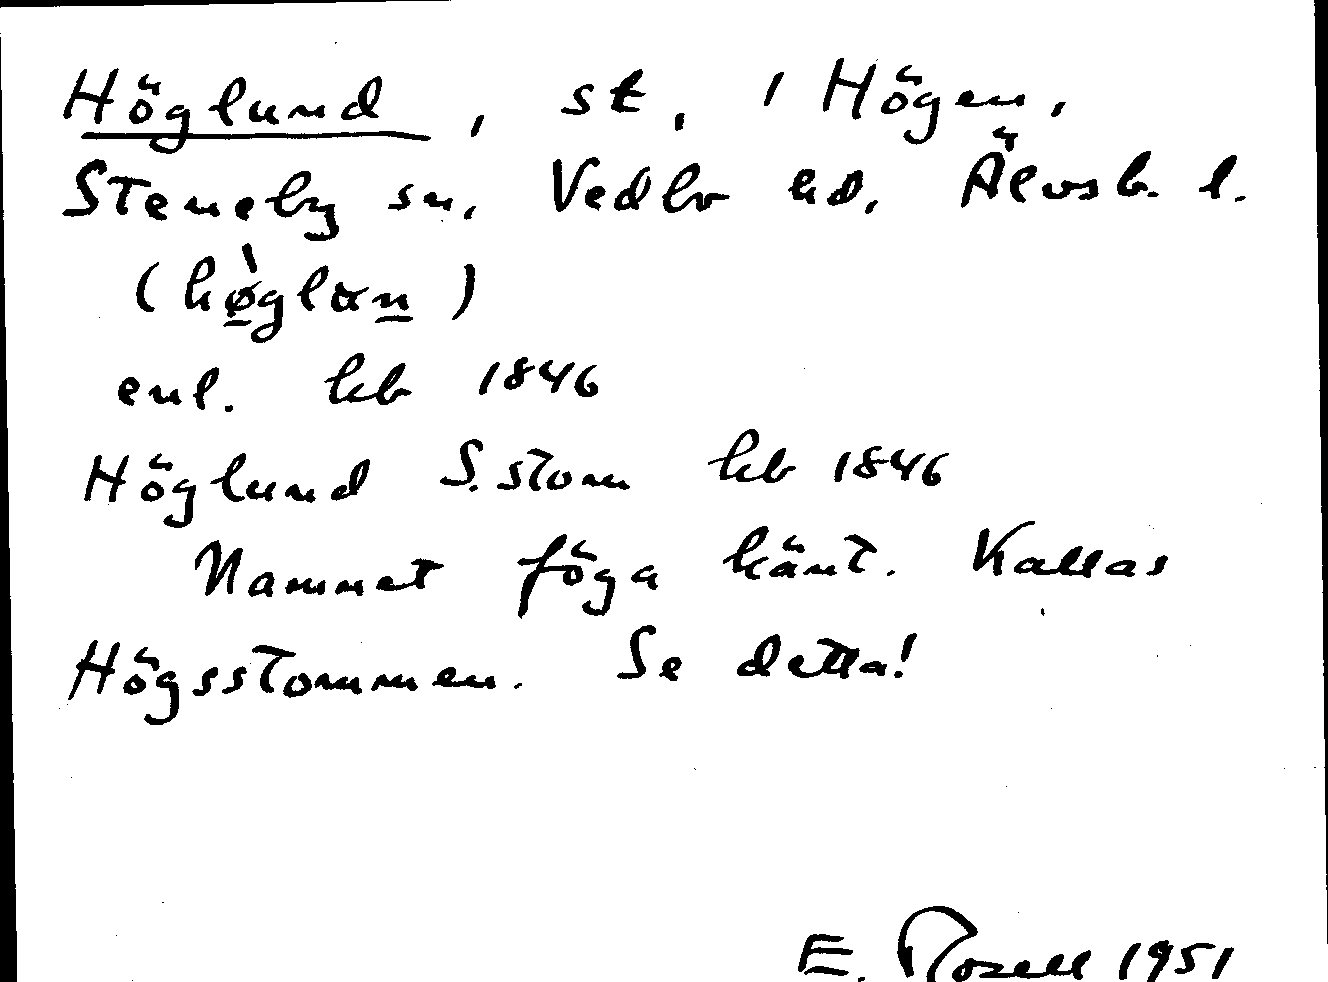 Höglund, st, 1 Högen,
Steneby sn, Vedbo hd, Älvsb. l.
(hø̀glɑn)
enl. kb 1846
Höglund S. stom kb 1846
Namnet föga känt. Kallas
Högsstommen. Se detta!
E. Rosell 1951